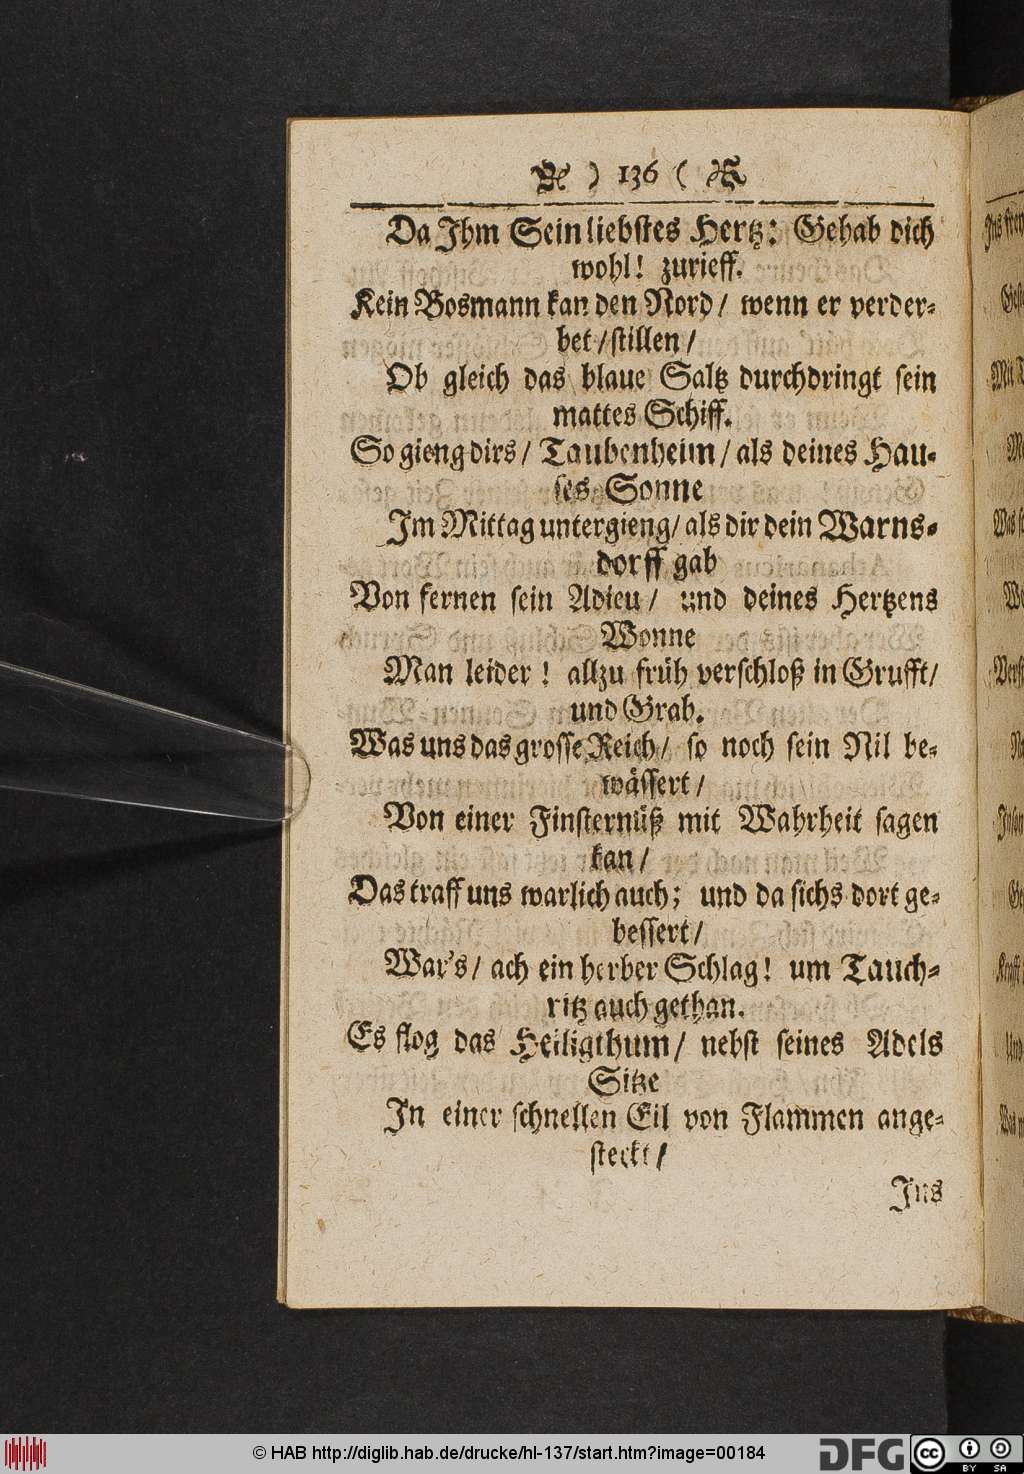 ) 136 (
Da Ihm Sein liebstes Hertz: Gehab dich
wohl! zurieff.
Kein Bosmann kan den Nord/ wenn er verder-
bet/stillen/
Ob gleich das blaue Saltz durchdringt sein
mattes Schiff.
So gieng dirs/ Taubenheim/ als deines Hau-
ses Sonne
Im Mittag untergieng/ als dir dein Warns-
dorff gab
Von fernen sein Adieu/ und deines Hertzens
Wonne
Man leider! allzu früh verschloß in Grufft/
und Grab.
Was uns das grosse Reich/ so noch sein Nil be-
wässert/
Von einer Finsternüß mit Wahrheit sagen
kan/
Das traff uns warlich auch; und da sichs dort ge-
bessert/
War's/ ach ein herber Schlag! um Tauch-
ritz auch gethan.
Es flog das Heiligthum/ nebst seines Adels
Sitze
In einer schnellen Eil von Flammen ange-
steckt/
Ins
© HAB http://diglib.hab.de/drucke/hl-137/start.htm?image=00184
DFG
cc
BY SA